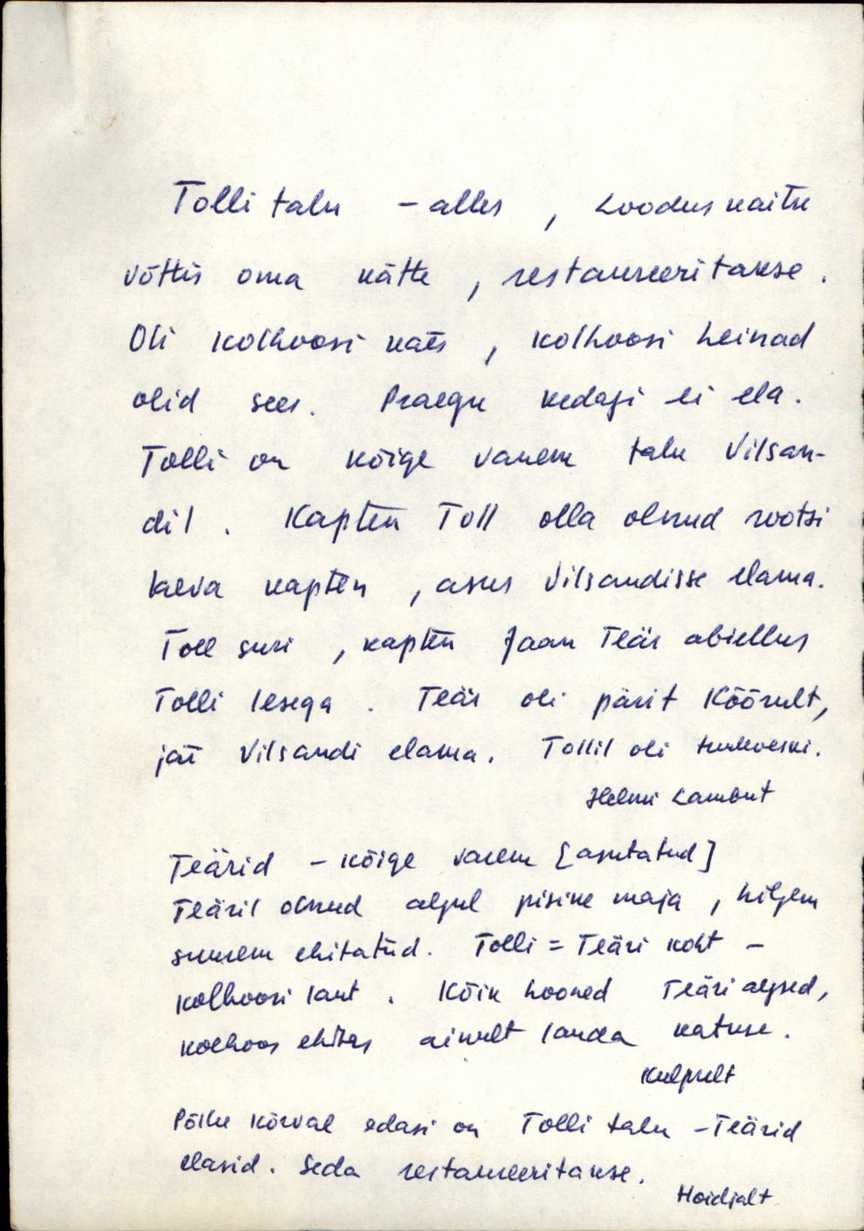 Tolli talu - alles, Looduskaitse
võttis oma kätte, restaureeritakse.
Oli kolhoosi käes, kolhoosi heinad
olid sees. Praegu kedagi ei ela.
Tolli on kõige vanem talu Vilsan-
dil. Kapten Toll olla olnud rootsi
laeva kapten, asus Vilsandisse elama.
Toll suri, kapten Jaan Teär abiellus
Tolli lesega. Teär oli pärit Kõõrult,
jäi Vilsandi elama. Tollil oli tuuleveski.
Helmi
Teärid - kõige vanem [asutatud]
Teäril olnud algul pisike maja, hiljem
suurem ehitatud. Tolli = Teäri koht -
kolhoosi laut. Kõik hooned Teäri aegsed,
kolhoos ehitas ainult lauda katuse.
Kulpult
Põllu kõrval edasi on Tolli talu - Teärid
elasid. Seda restaureeritakse.